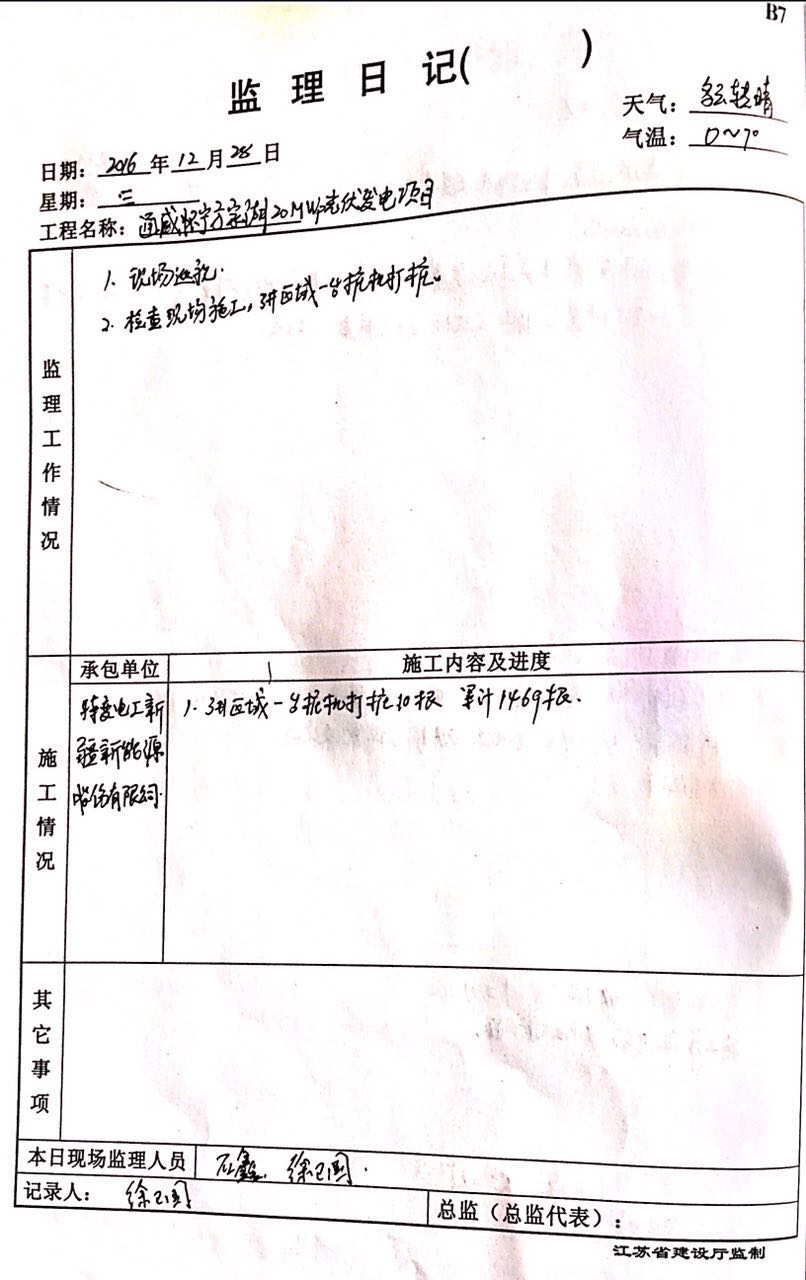 B7
监 理 日 记( )
天气: 多云转晴
气温: 0~7°
日期: 2016 年 12 月 28 日
星期: 三
工程名称: 通威怀宁 20MWp光伏发电项目
监理工作情况
1. 现场巡视.
2. 检查现场施工, 3#区域一台桩机打桩。
施工情况
承包单位
施工内容及进度
特变电工新
疆新能源
股份有限公司.
1. 3#区域一台桩机打桩10根 累计1469根.
其它事项
本日现场监理人员 石鑫 徐卫国.
记录人: 徐卫国
总监(总监代表):
江苏省建设厅监制